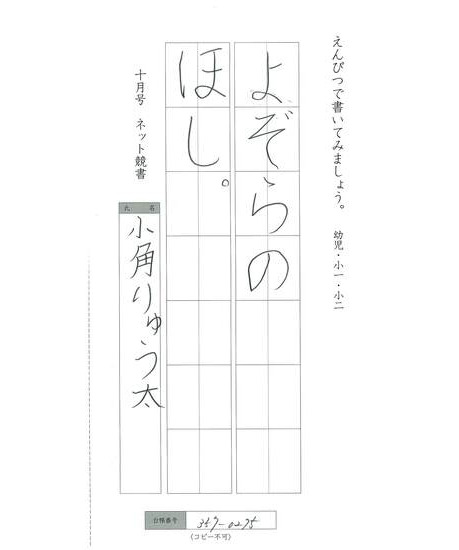 えんぴつで書いてみましょう。　幼児・小一・小二
よぞらの
ほし。
十月号　ネット競書
氏　名
小角りゅう太
台帳番号　357-0275
(コピー不可)